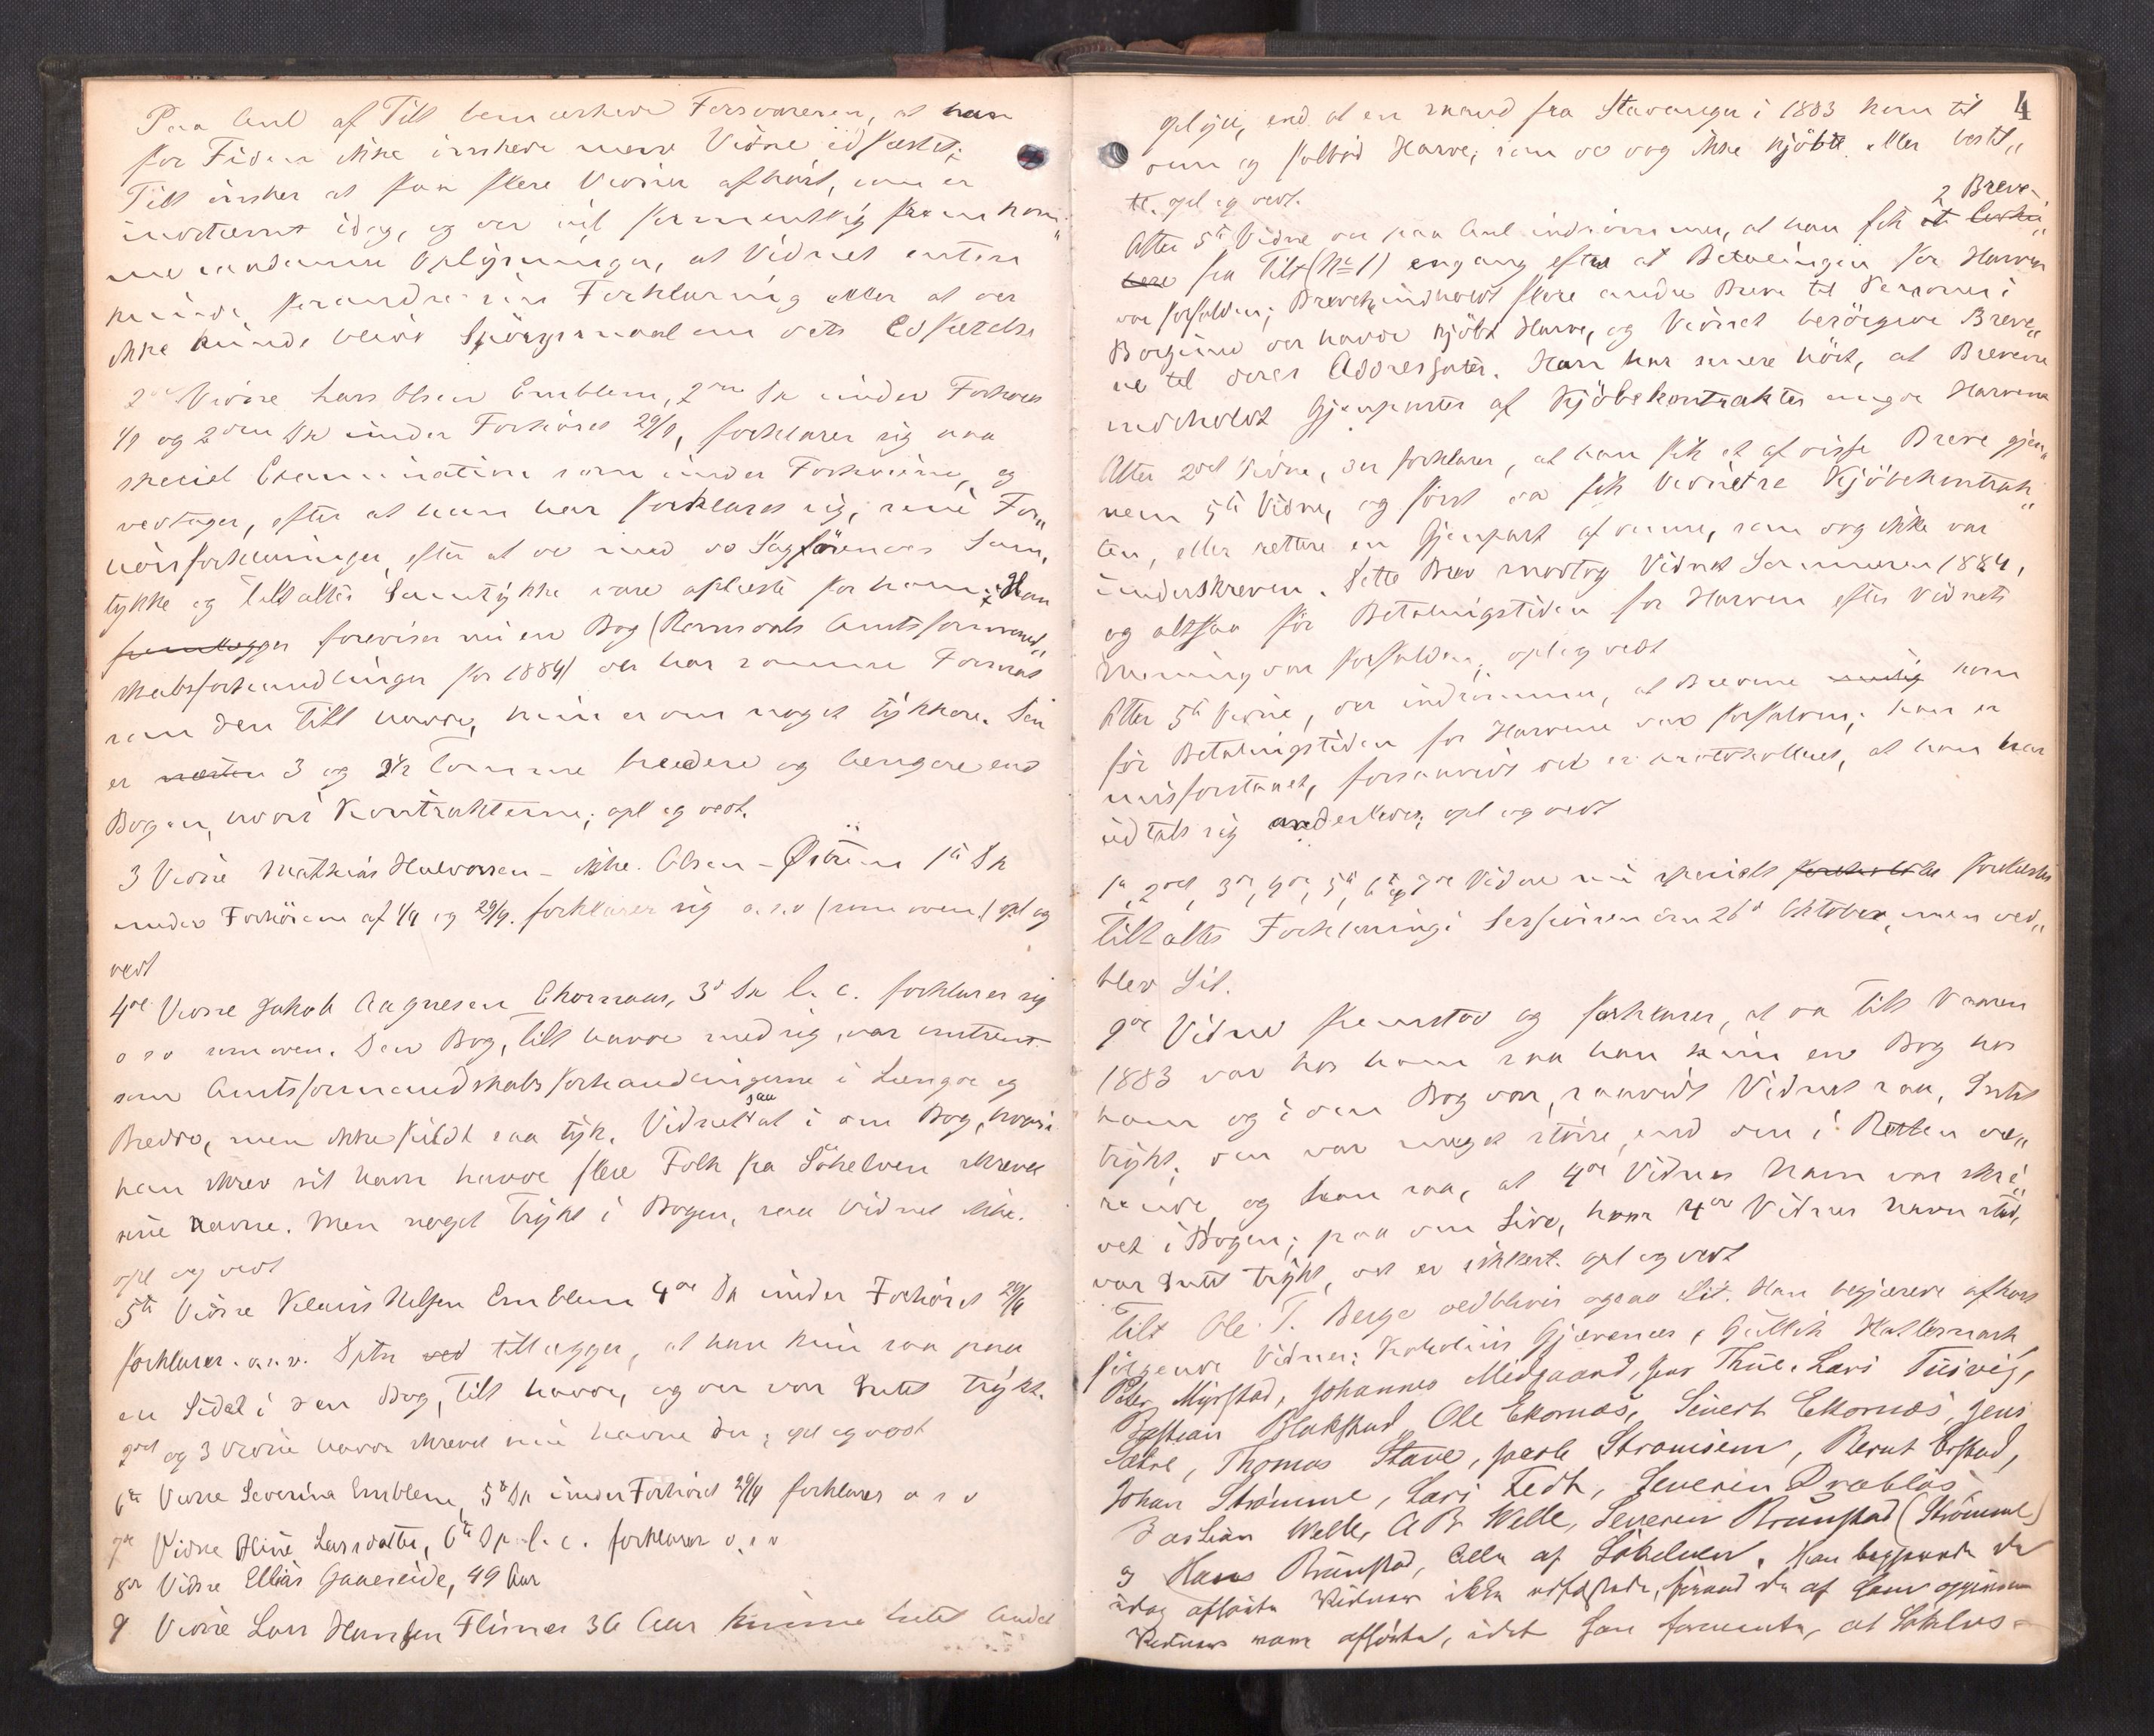 Paa Anl af Tilt bemærkede Forsvareren, at han
for Tiden ikke önskede mere Vidne edfæstet;
Tilt önsker at faa flere Vidner afhört, som er
indstevnt idag, og der vil formentlig fremkom„
me saadanne Oplysninger, at Vidnet enten
kunde forandre sin Forklaring eller at der
ikke kunde blive Spörgsmaal om dets Edfæstelse
2det Vidne Lars Olsen Emblem, 2den Dp under Forhöret
1/9 og 2den Dp under Forhöret 29/9, forklarer sig paa
speciel Examination som under Forhörene, og
vedtager, efter at han har forklaret sig, sine For„
hörsforklaringer, efter at de med de Sagförendes Sam„
tykke og Tiltaltes Samtykke vare oplæste for ham; Han
fremlægger foreviser nu en Bog (Romsdals Amtsformand„
skabsforhandlinger for 1884) der har samme Format
som den Tilt havde, kun er den noget tykkere. Den
er næsten 3 og 2½ Tomme bredere og længere end
Bogen, hvori Kontrakterne; opl og vedt.
3 Vidne Mathias Halvorsen - ikke Olsen - Öström 1ste Dp
under Forhörene af 1/9 og 29/9. forklarer sig o. s. v (som oven) opl og
vedt
4de Vidne Jakob Aagnesen Ekornaas, 3de Dp l. c. forklarer sig
o s v som oven. Den Bog, Tilt havde med sig, var omtrent
som Amtsformandskabsforhandlingerne i Længde og
Bredde, men ikke fuldt saa tyk. Vidnet saa at i den Bog, hvori
han skrev sit Navn havde flere Folk fra Sökelven skrevet
sine Navne. Men noget Trykt i Bogen, saa Vidnet ikke.
opl og vedt
5te Vidne Klaus Nilsen Emblem 4de Dp under Forhöret 29/9
forklarer o. s. v. Dptn ved tillægger, at han kun saa paa
en Side i den Bog, Tilt havde, og der var Intet Trykt.
2det og 3 Vidne havde skrevet sine Navne der; opl og vedt
6te Vidne Severina Emblem, 5te Dp under Forhöret 29/9 forklarer o s v
7de Vidne Oline Larsdatter, 6te Dp l. c. forklarer o. s v
8de Vidne Ellias Gaaseide, 49 Aar
9 Vidne Lars Hansen Flisnes 36 Aar kunne Intet Andet
4
oplyse, end at en Mand fra Stavanger i 1883 kom til
dem og falböd Harve, som de dog ikke kjöbte eller bestil„
te. opl og vedt.
Atter 5te Vidne der paa Anl indrömmer, at han fik et 2 Breve
fra Tilt (No 1) engang efter at Betalingen for Harven
var forfalden; Brevet indholdt flere andre Breve til Personer i
Borgund der havde kjöbt Harve, og Vidnet besörgede Breve„
ne til deres Addressater. Han har senere hört, at Brevene
indeholdt Gjenparter af Kjöbekontrakter angde Harvene
Atter 2det Vidne, der forklarer, at han fik et af disse Breve gjen„
nem 5te Vidne, og först da fik Vidnet se Kjöbekontrak„
ten, eller rettere en Gjenpart af denne, som dog ikke var
underskreven. Dette Brev modtog Vidnet Sommeren 1884,
og altsaa för Betalingstiden for Harven efter Vidnets
Mening var forfalden; opl og vedt
Atter 5te Vidne, der indrömmer, at Brevene kom
för Betalingstiden for Harvene var forfalden; han er
misforstaaet, forsaavidt det er protokolleret, at han har
udtalt sig anderledes; opl og vedt
1ste 2det, 3de, 4de, 5te 6te og 7de Vidne nu specielt foreholdte foreholdtes
Tiltaltes Forklaring i Sessionen den 26de Oktober, men ved„
blev Sit.
9de Vidne fremstod og forklarer, at da Tilt Vaaren
1883 var hos ham saa han kun en Bog hos
ham og i den Bog var, saavidt Vidnet saa, Intet
trykt; den var meget större, end den i Retten væ„
rende og han saa, at 4de Vidnes Navn var skre„
vet i Bogen; paa den Side, hvor 4de Vidnes Navn stod,
var Intet trykt, det er sikkert. opl og vedt
Tilt Ole T. Berge vedblev ogsaa Sit. Han begjærede afhört
fölgende Vidner: Karolius Gjærenes, Gullik Hatlemark,
Peder Myrstad, Johannes Midgaard, Jens Thue, Lars Tusvig,
Bastian Blakstad, Ole Ekornæs, Sivert Ekornæs, Jens
Sætre, Thomas Stave, Joachs Straumsem, Bernt Orstad,
Johan Strömme, Lars Tedt, Severin Drabløs,
Bastian Welle, A B Welle, Severin Brunstad (Strömme)
og Hans Brunstad, Alle af Sökelven. Han begjærede de
idag afhörte Vidner ikke edfæstede, förend de af ham opgivne
Vidner vare afhörte, idet han formente, at Sökelvs-